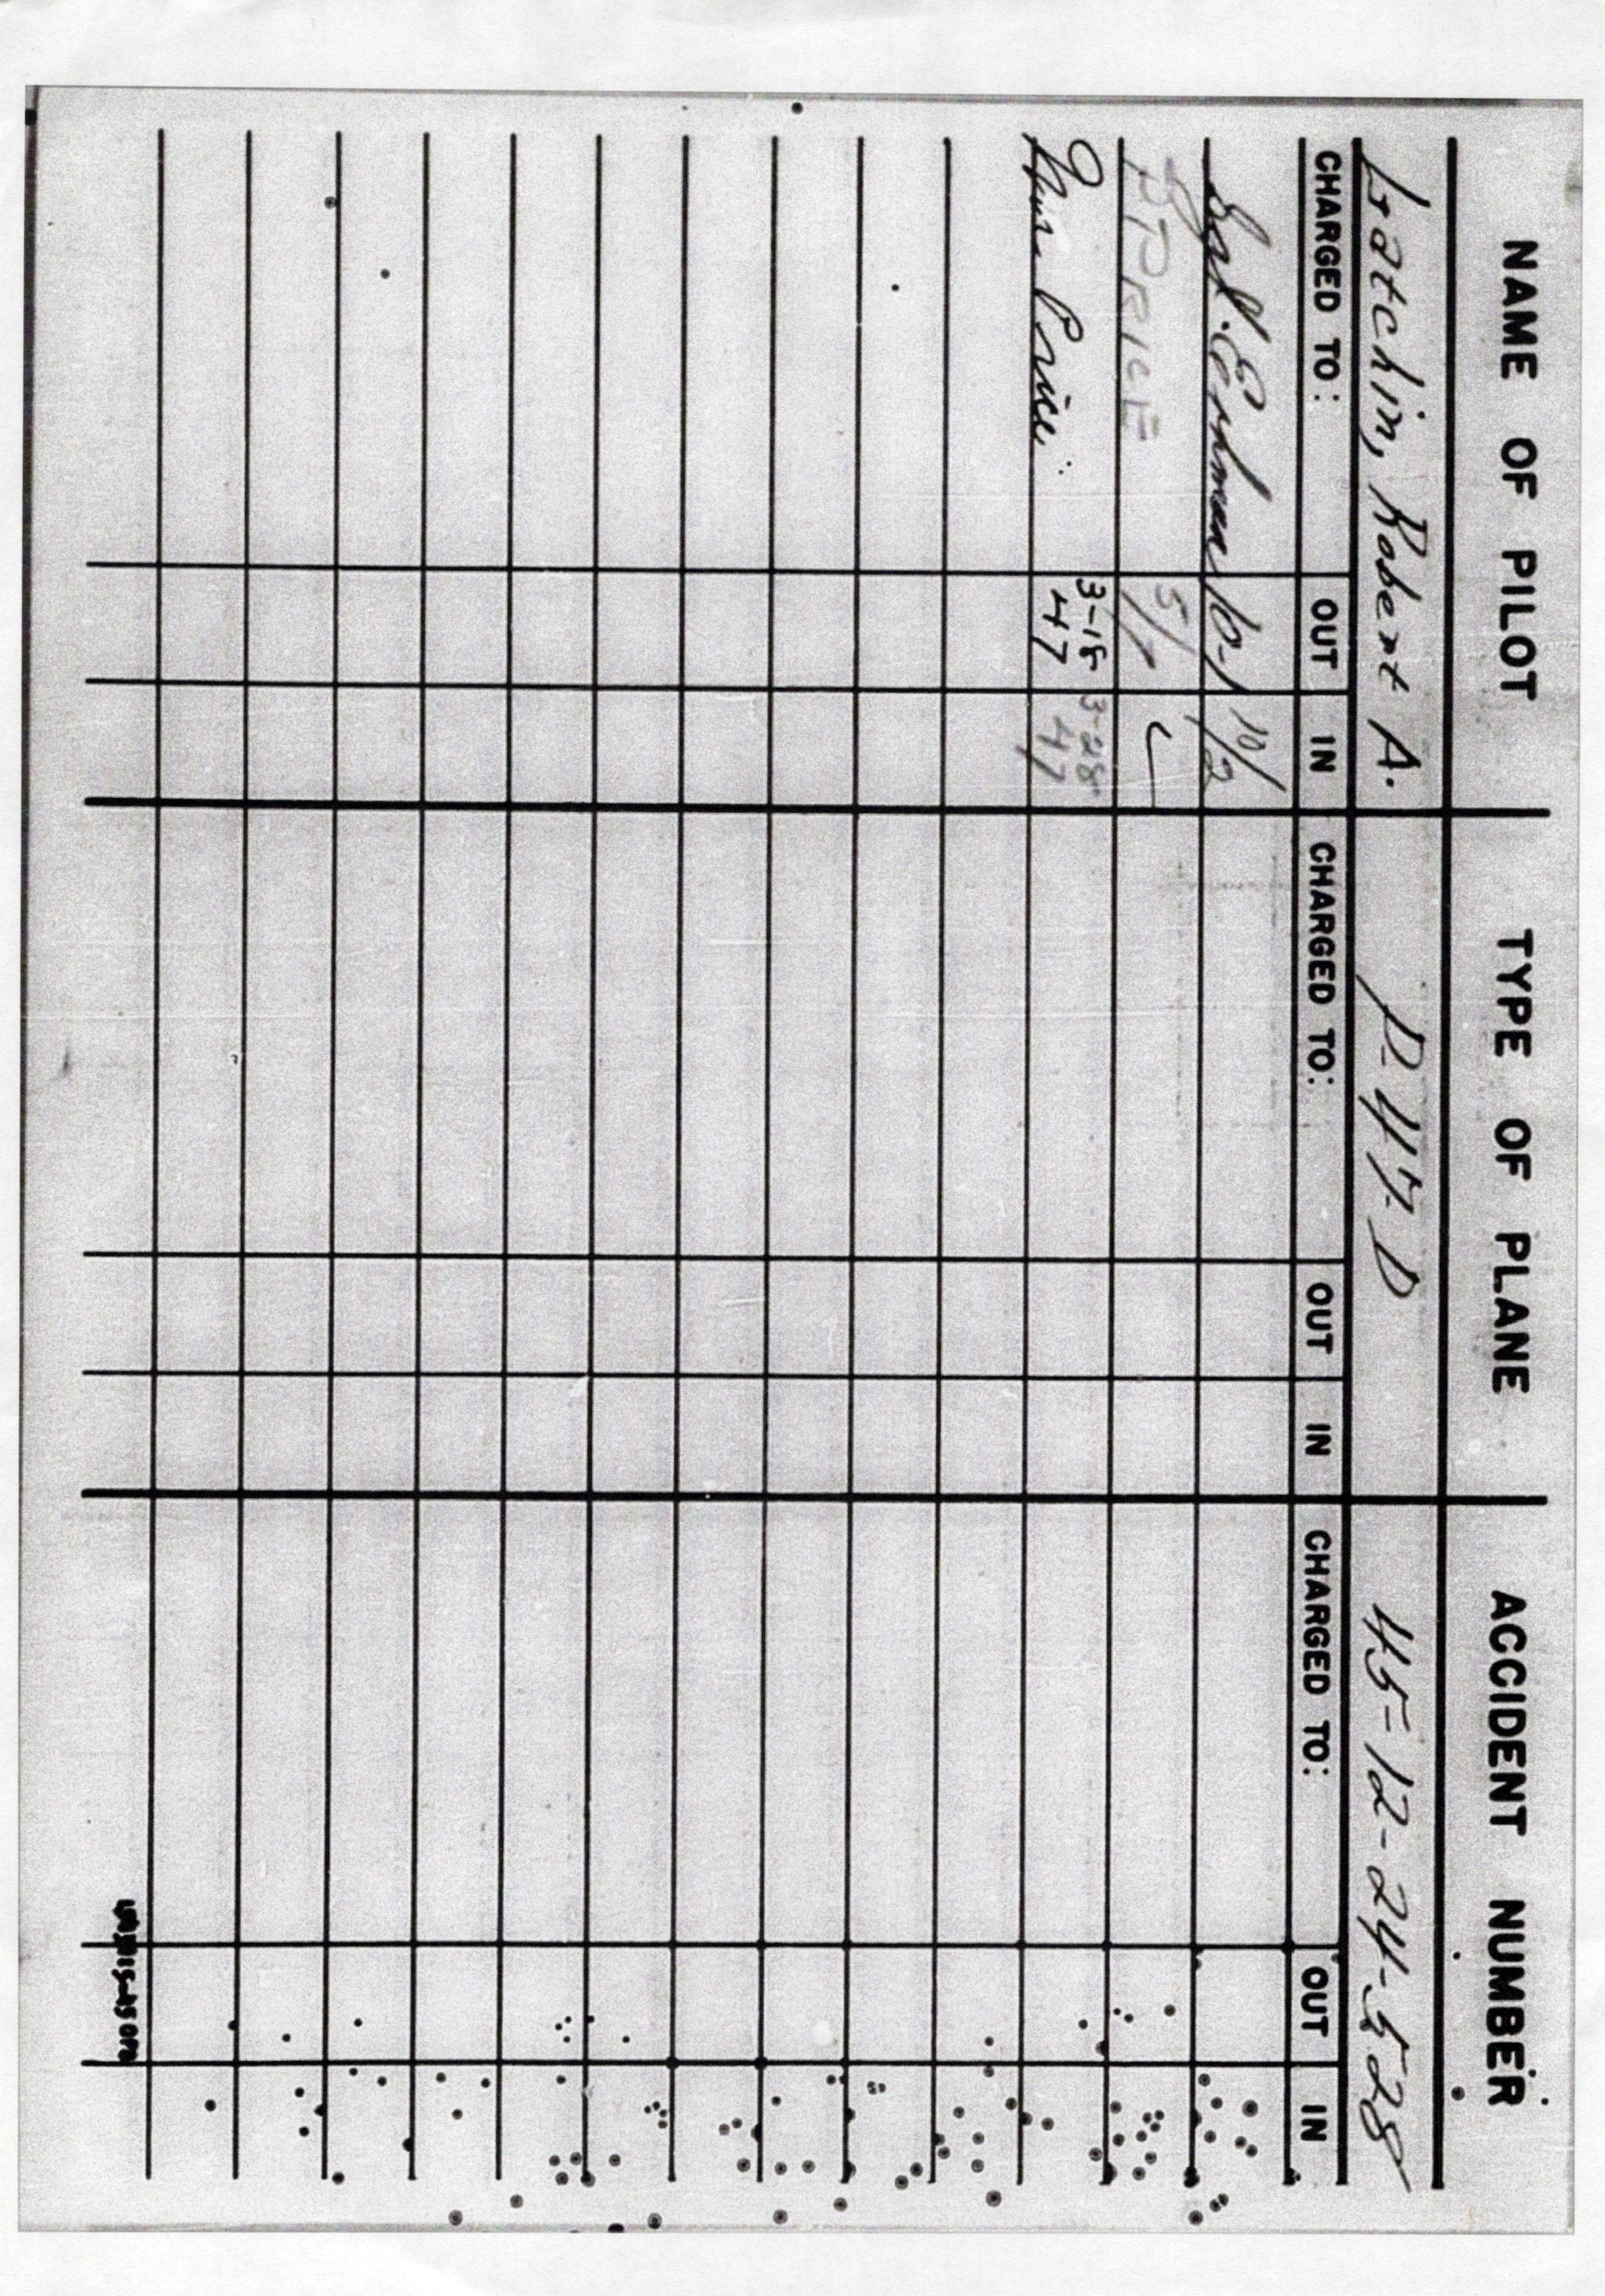 NAME OF PILOT TYPE OF PLANE ACCIDENT NUMBER
Latchin, Robert A. P-47-D 45-12-24-528
CHARGED TO: OUT IN CHARGED TO: OUT IN CHARGED TO: OUT IN
10-1 10/2
PRICE 5/1
Price 3-18 3-28
47 47